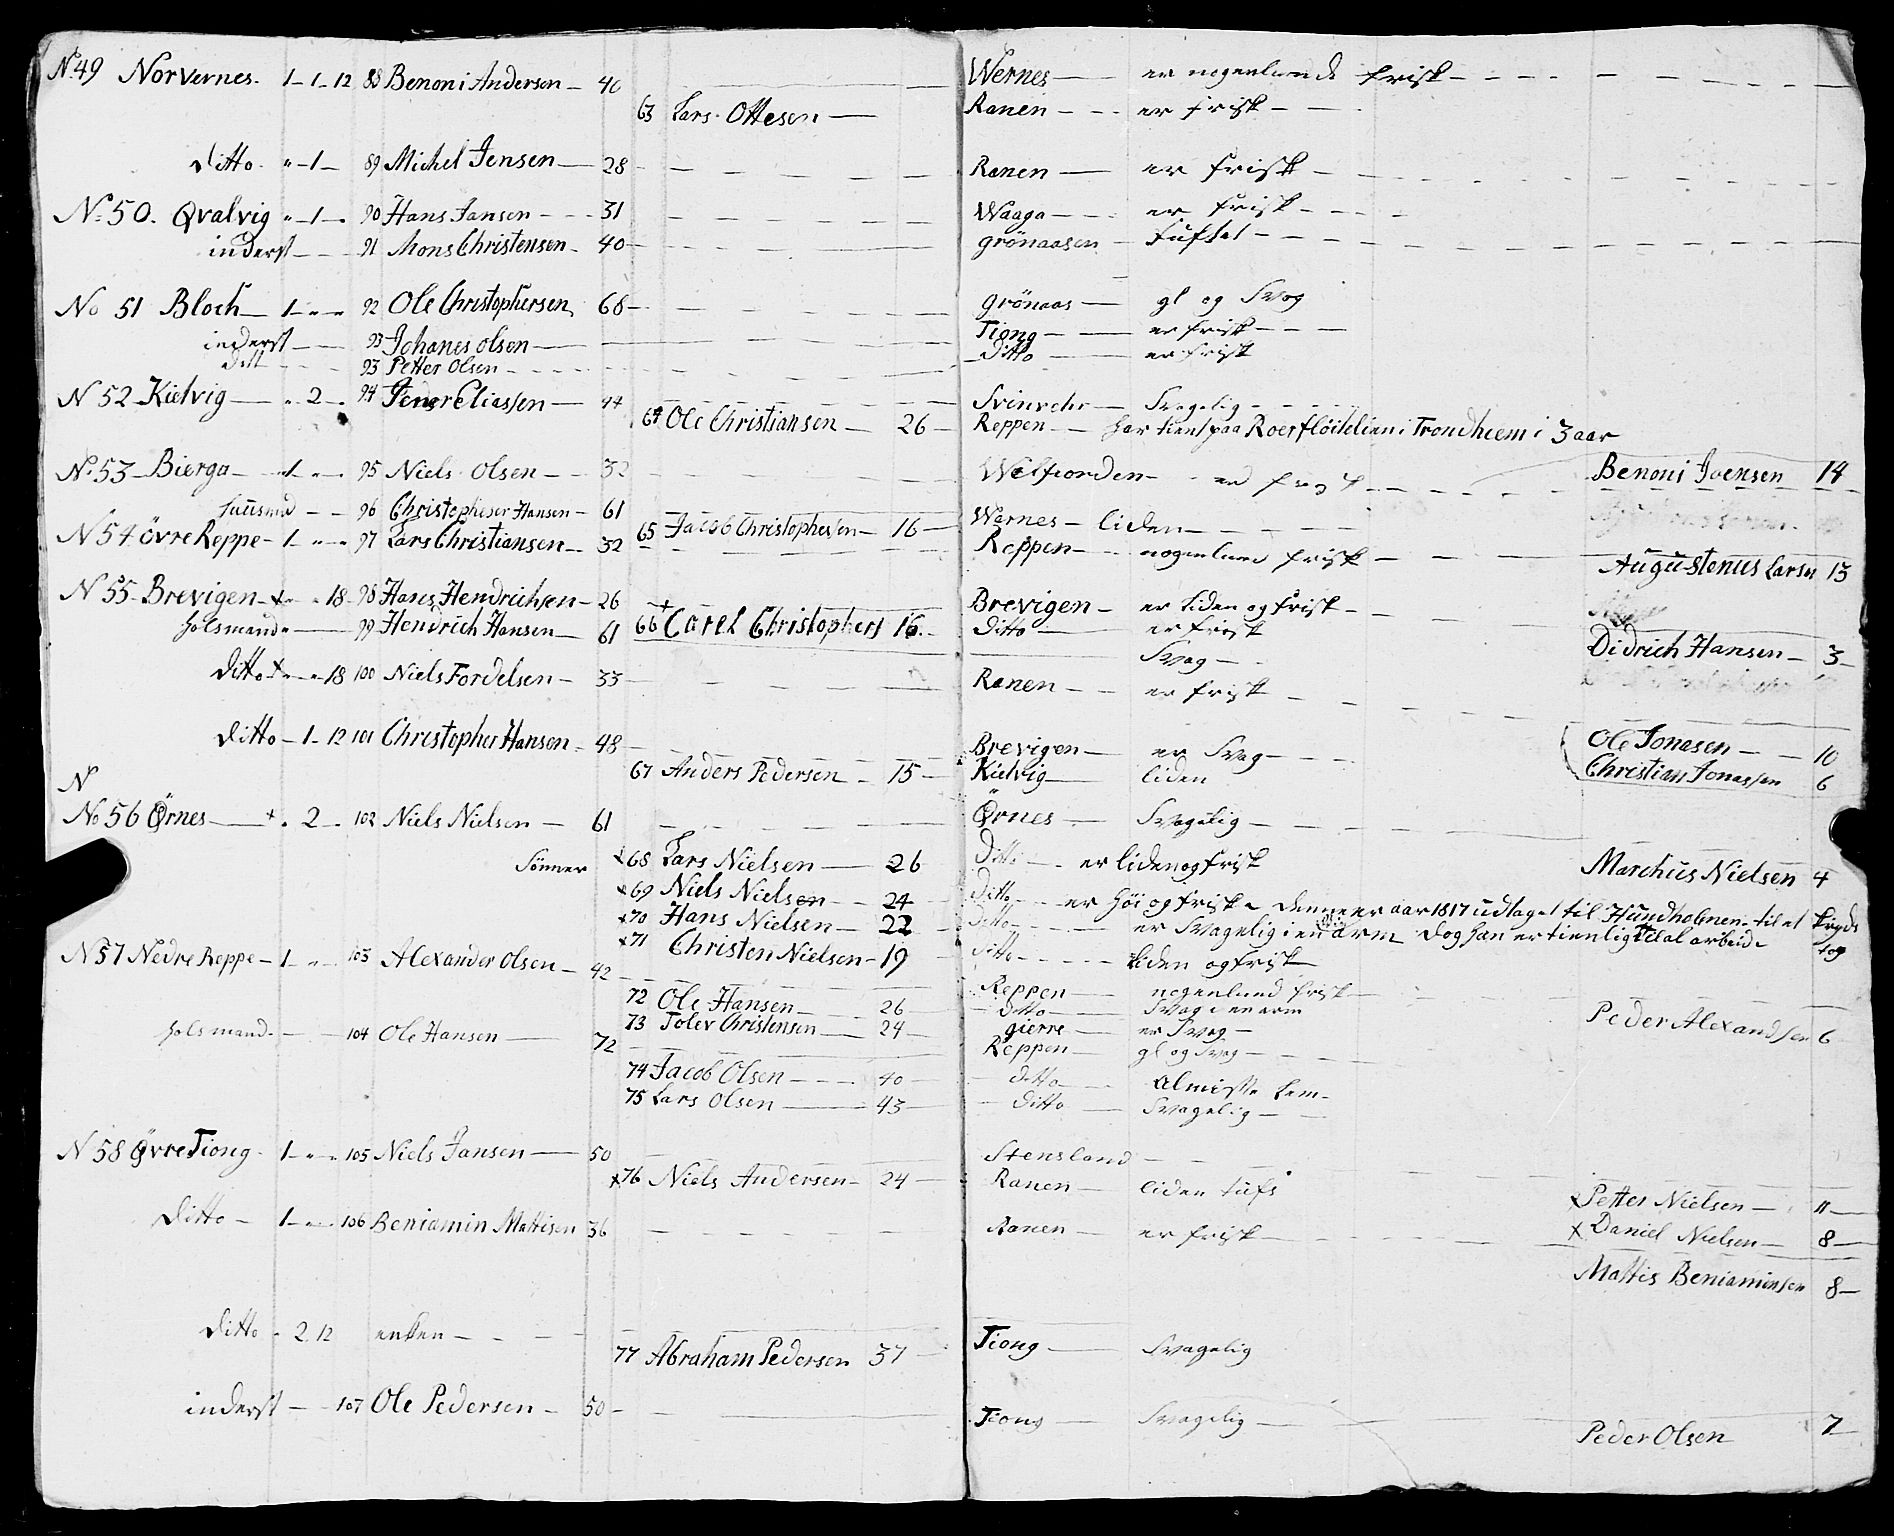 No 49 Norvernes. 1-1-12 88 Benoni Andersen - 40 Wernes - er nogenlunde frisk
63 Lars Ottesen - Ranen - er frisk
Ditto - " - 1 - 89 Michel Jensen - 28 Ranen - er frisk
No 50. Qvalvig " - 1 - " 90 Hans Jansen - 31 Waaga - er frisk
inderst - 91 Mons Christensen - 40 grönaasen - tufset
No 51 Bloch - 1 - " - " 92 Ole Christophersen 68 grönaas - gl og Svag
inderst - 93 Johanes olsen - Tiong - er frisk
Ditt - 93 Petter Olsen - Ditto - er frisk
N 52 Kielvig - " - 2 - " 94 Eliassen - 44 Svinvehr - Svagelig
64 Ole Christiansen - 26 - Reppen - har tient paa Roerfloitelien i Trondhiem i 3 aar
No 53 Bierga - 1 - " - " 95 Niels Olsen - 32 Welfiorden - er frisk Benoni Joensen 14
huusmd - 96 Christopher Hansen - 61
65 Jacob Christophersen - 16 - Wernes - liden
N 54 övre Reppe - 1 - " - " 97 Lars Christiansen - 32 Reppen - nogenlund frisk Augustenus Larsen 13
N 55 Brevigen - x " - 18 - 98 Hans Hendrichsen - 26 Brevigen - er liden og frisk
holsmand - 99 Hendrich Hansen - 61 66 Carel Christophers 16 - Ditto - er frisk
Svag - Didrich Hansen - 3
Ditto x " - " - 18 100 Niels Fordelsen - 33 Ranen - er frisk
Ditto - 1 - 12 101 Christopher Hansen - 48 Brevigen - er Svag Ole Jonasen - 10
67 Anders Pedersen - 15 - Kielvig - liden Christian Jonassen 6
N
No 56 Örnes - x " 2 - 102 Niels Nielsen - 61 Örnes - Svagelig
Sönner x 68 Lars Nielsen - 26 Ditto - er liden og frisk Marchus Nielsen 4
x 69 Niels Nielsen - 24 Ditto - er höi og frisk - denne er aar 1817 udtaget til Hundholmen - til et krydstog
x 70 Hans Nielsen - 22 Ditto - er Svagelig i en arm Dog han er tienlig til al arbeide
x 71 Christen Nielsen - 19 Ditto - liden og frisk
N 57 Nedre Reppe - 1 - " - 103 Alexander Olsen - 42 Reppen - nogenlund frisk
72 Ole Hansen - 26 Ditto - Svag i en arm Peder Alexandsen 6
73 Tolev Christensen - 24 gierre - er Svag
holsmand - 104 Ole Hansen - 72 Reppen - gl og Svag
74 Jacob Olsen - 40 Ditto - almisse lem
75 Lars Olsen - 43 Ditto - Svagelig
N 58 Övre Tiong - 1 - " - " 105 Niels Jansen - 50 Stensland
x 76 Niels Andersen - 24 Ranen - liden tufs x Petter Nielsen - 11
Ditto - 1 - " - 106 Beniamin Mattisen 36 Ranen - er frisk x Daniel Nielsen - 8
Mattis Beniaminsen 8
Ditto " 2. 12 enken -
77 Abraham Pedersen 37 Tiong - Svagelig
inderst - 107 Ole Pedersen - 50 Tiong - Svagelig
Peder Olsen 7